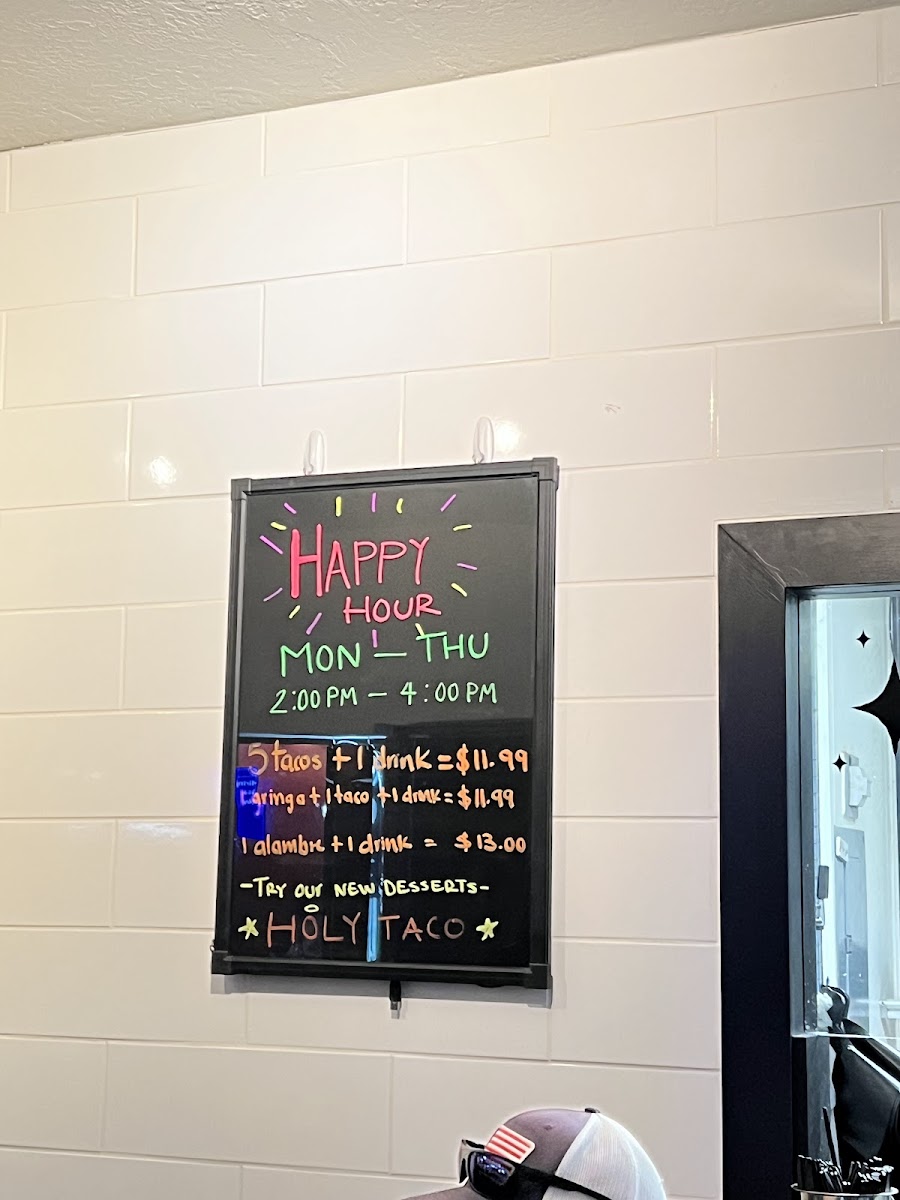 HAPPY
HOUR
MON — THU
2:00 PM — 4:00 PM
5 tacos + 1 drink = $11.99
+ 1 taco + 1 drink = $11.99
1 alambre + 1 drink = $13.00
-TRY OUR NEW DESSERTS-
HOLY TACO